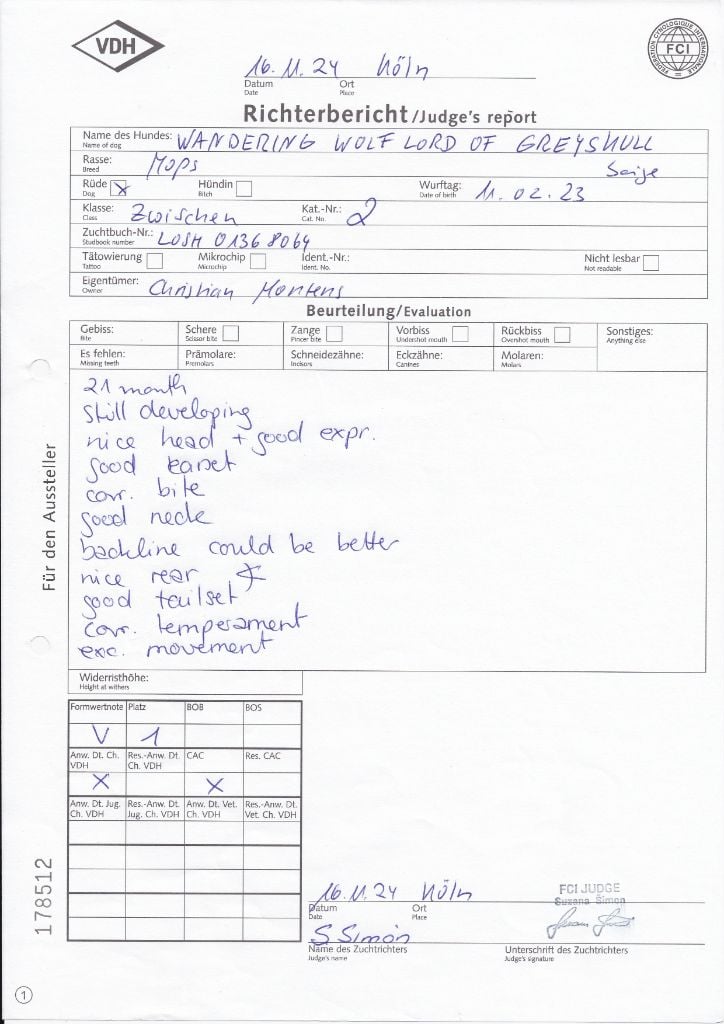 VDH
FEDERATION CYNOLOGIQUE INTERNATIONALE
FCI
16.11.24 Köln
Datum Ort
Date Place
Richterbericht/Judge's report
Name des Hundes: WANDERING WOLF LORD OF GREYSKULL
Name of dog
Rasse: Mops beige
Breed
Rüde X Hündin Wurftag: 11.02.23
Dog Bitch Date of birth
Klasse: Zwischen Kat.-Nr.: 2
Class Cat. No.
Zuchtbuch-Nr.: LOSH 01368064
Studbook number
Tätowierung Mikrochip Ident.-Nr.: Nicht lesbar
Tattoo Microchip Ident. No. Not readable
Eigentümer: Christian Montens
Owner
Beurteilung/Evaluation
Gebiss: Schere Zange Vorbiss Rückbiss Sonstiges:
Bite Scissor bite Pincer bite Undershot mouth Overshot mouth Anything else
Es fehlen: Prämolare: Schneidezähne: Eckzähne: Molaren:
Missing teeth Premolars Incisors Canines Molars
21 month
still developing
nice head + good expr.
good earset
corr. bite
good neck
backline could be better
nice rear
good tailset
corr. temperament
exc. movement
Für den Aussteller
Widerristhöhe:
Height at withers
Formwertnote Platz BOB BOS
V 1
Anw. Dt. Ch. VDH Res.-Anw. Dt. Ch. VDH CAC Res. CAC
X X
Anw. Dt. Jug. Ch. VDH Res.-Anw. Dt. Jug. Ch. VDH Anw. Dt. Vet. Ch. VDH Res.-Anw. Dt. Vet. Ch. VDH
178512
16.11.24 Köln
Datum Ort
Date Place
FCI JUDGE
Suzana Simon
S Simon
Name des Zuchtrichters Unterschrift des Zuchtrichters
Judge's name Judge's signature
1